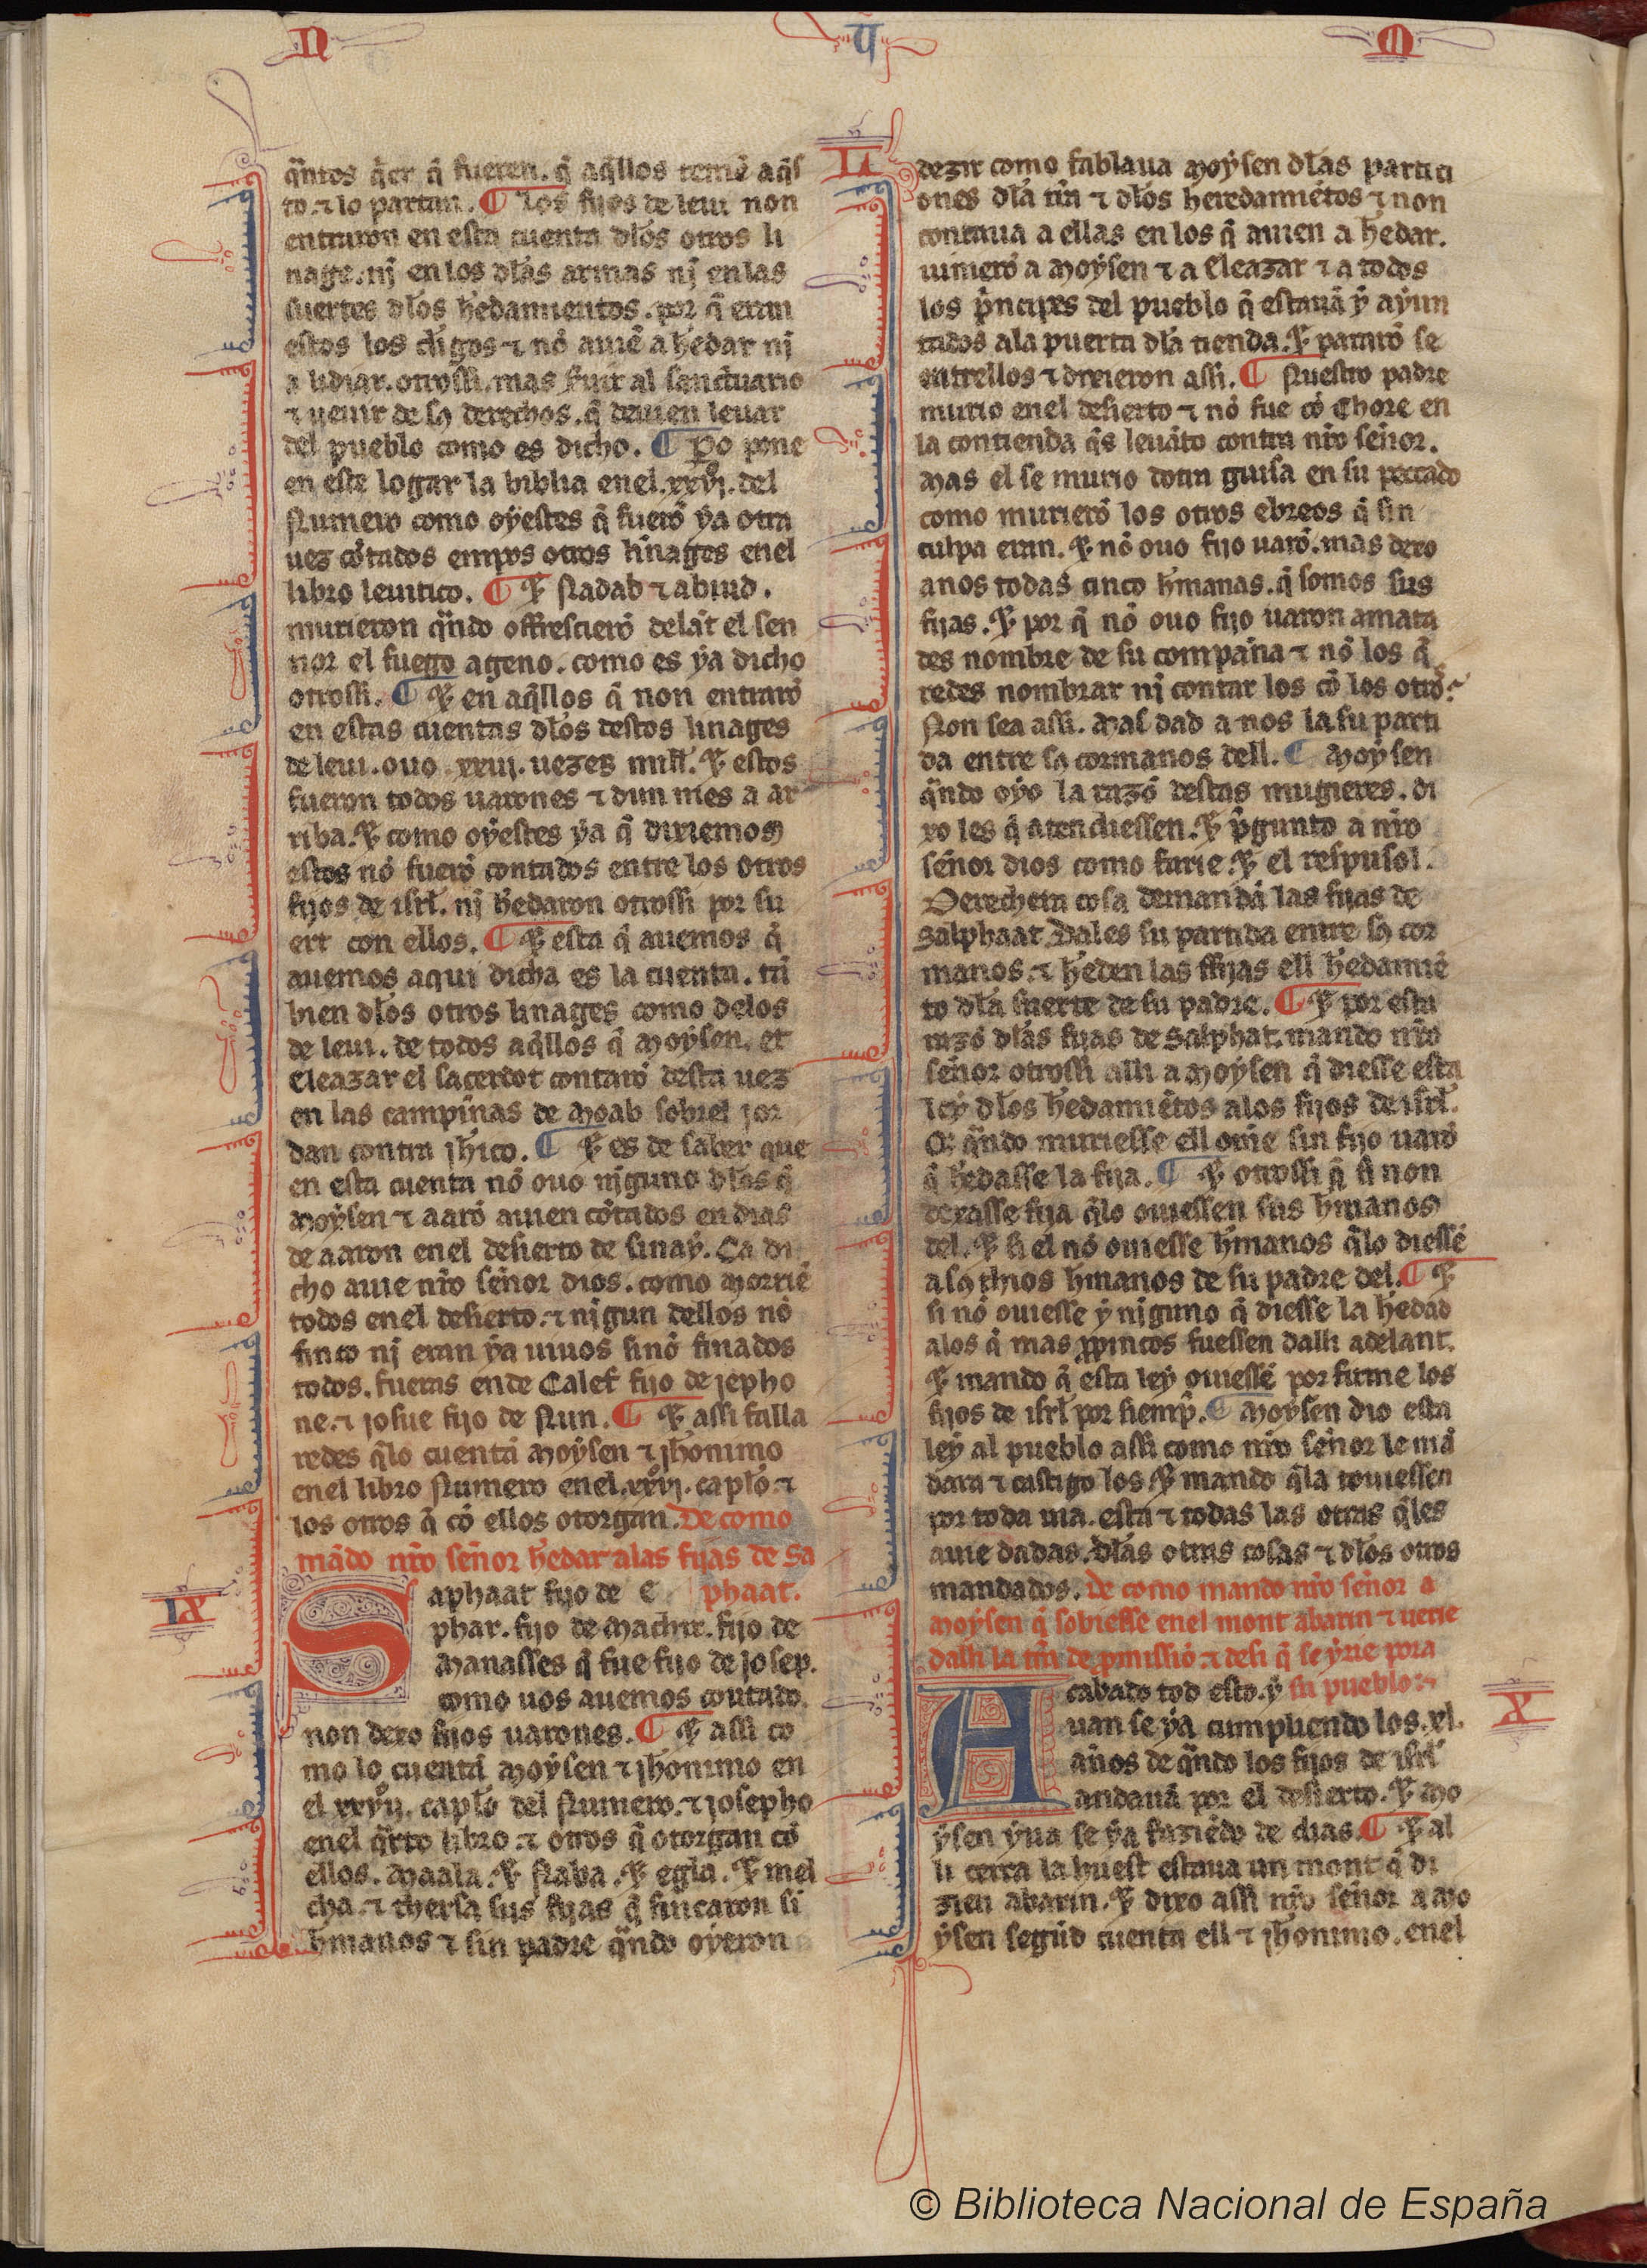 N
V
M
q̃ntos q̃er q̃ fueren. q̃ aq̃llos tomẽ aq̃s
to. ⁊ lo partan. ¶ Los fijos de leui non
entraron en esta cuenta dłos otros li
nage. nj en los dłas armas nj en las
suertes dłos h̃edamientos. por q̃ eran
estos los cłigos ⁊ nõ auiẽ a h̃edar nj
a lidiar. otrossi. mas seruir al sanctuario
⁊ ueuir de sꝯ derechos. q̃ deuien leuar
del pueblo como es dicho. ¶ Po pone
en este logar la biblia enel. xxvj. del
Numero como oyestes q̃ fuerõ ya otra
uez cõtados empos otros linages enel
libro leuitico. ¶ ⁊ Nadab ⁊ abiud.
murieron q̃ndo offrescierõ delãt el sen
nor el fuego ageno. como es ya dicho
otrossi. ¶ ⁊ en aq̃llos q̃ non entrarõ
en estas cuentas dłos destos linages
de leui. ouo. xxiij. uezes mill. ⁊ estos
fueron todos uarones ⁊ dun mes a ar
riba. ⁊ como oyestes ya q̃ dixiemos
estos nõ fuerõ contados entre los otros
fijos de isrł. nj h̃edaron otrossi por su
ert con ellos. ¶ ⁊ esta q̃ auemos q̃
auemos aqui dicha es la cuenta. tã
bien dłos otros linages como delos
de leui. de todos aq̃llos q̃ Moysen. et
Eleazar el sacerdot contarõ desta uez
en las campiñas de Moab sobrel jor
dan contra jħico. ¶ ⁊ es de saber que
en esta cuenta nõ ouo njguno dłos q̃
Moysen ⁊ aarõ auien cõtados en dias
de aaron enel desierto de sinay. Ca di
cho auie nr̃o señor dios. como morriẽ
todos enel desierto. ⁊ nigun dellos nõ
finco nj eran ya uiuos sinõ finados
todos. fueras ende Calef fijo de jepho
ne. ⁊ josue fijo de Nun. ¶ ⁊ assi falla
redes q̃lo cuentã Moysen ⁊ jħonimo
enel libro Numero enel. xxvj. capło. ⁊
los otros q̃ cõ ellos otorgan. De como
mãdo nr̃o señor h̃edar alas fijas de Sa
phaat.
IX
Saphaat fijo de E
phar. fijo de Machir. fijo de
Manasses q̃ fue fijo de josep.
como uos auemos contado.
non dexo fijos uarones. ¶ ⁊ assi co
mo lo cuentã Moysen ⁊ jħonimo en
el xxvij. capło del Numero. ⁊ josepho
enel q̃rto libro. ⁊ otros q̃ otorgan cõ
ellos. Maala. ⁊ Naba. ⁊ egla. ⁊ mel
cha. ⁊ thersa sus fijas q̃ fincaron si
h̃manos ⁊ sin padre q̃ndo oyeron
LI
dezir como fablaua Moysen dłas partici
ones dła tr̃ra ⁊ dłos heredamiẽtos ⁊ non
contaua a ellas en los q̃ auien a h̃edar.
uinierõ a Moysen ⁊ a Eleazar ⁊ a todos
los p̃ncipes del pueblo q̃ estauã y ayun
tados ala puerta dła tienda. ⁊ pararõ se
entrellos ⁊ dixieron assi. ¶ Nuestro padre
murio enel desierto ⁊ nõ fue cõ Chore en
la contienda q̃s leuãto contra nr̃o señor.
Mas el se murio dotra guisa en su peccado
como murierõ los otros ebreos q̃ sin
culpa eran. ⁊ nõ ouo fijo uarõ. mas dexo
anos todas cinco h̃manas. q̃ somos sus
fijas. ⁊ por q̃ nõ ouo fijo uaron amata
des nombre de su compaña ⁊ nõ los q̃
redes nombrar nj contar los cõ los otros?
Non sea assi. Mas dad a nos la su parti
da entre sꝯ cormanos dell. ¶ Moysen
q̃ndo oyo la razõ destas mugieres. di
xo les q̃ atendiessen. ⁊ p̃gunto a nr̃o
señor dios como farie. ⁊ el respusol.
Derechera cosa demandã las fijas de
Salphaat. Dales su partida entre sꝯ cor
manos. ⁊ h̃eden las fijas ell h̃edamiẽ
to dła suerte de su padre. ¶ ⁊ por esta
razõ dłas fijas de Salphat. mando nr̃o
señor otrossi alli a Moysen q̃ diesse esta
ley dłos h̃edamiẽtos alos fijos de isrł.
Q̃ q̃ndo muriesse ell ome sin fijo uarõ
q̃ h̃edasse la fija. ¶ ⁊ otrossi q̃ si non
dexasse fija q̃lo ouiessen sus h̃manos
del. ⁊ si el nõ ouiesse h̃manos q̃lo diessẽ
a sꝯ thios h̃manos de su padre del. ¶ ⁊
si nõ ouiesse y njguno q̃ diesse la h̃edad
alos q̃ mas p̱pincos fuessen dalli adelant.
⁊ mando q̃ esta ley ouiessẽ por firme los
fijos de isrł por siemp̃. ¶ Moysen dio esta
ley al pueblo assi como nr̃o señor le mã
dara ⁊ castigo los ⁊ mando q̃la touiessen
por toda uia. esta ⁊ todas las otras q̃les
auie dadas. dłas otras cosas ⁊ dłos otros
mandados. De como mando nr̃o señor a
Moysen q̃ sobiesse enel mont abarin ⁊ uerie
dalli la tr̃ra de p̱missiõ. ⁊ desi q̃ se yrie pora
su pueblo.
X
Acabado tod esto. y
uan se ya cumpliendo los. xl.
años de q̃ndo los fijos de isrł
andauã por el desierto. ⁊ Mo
ysen yua se ya faziẽdo de dias. ¶ ⁊ al
li cerca la huest estaua un mont q̃ di
zien abarin. ⁊ dixo assi nr̃o señor a Mo
ysen segũd cuenta ell ⁊ jħonimo. enel
© Biblioteca Nacional de España